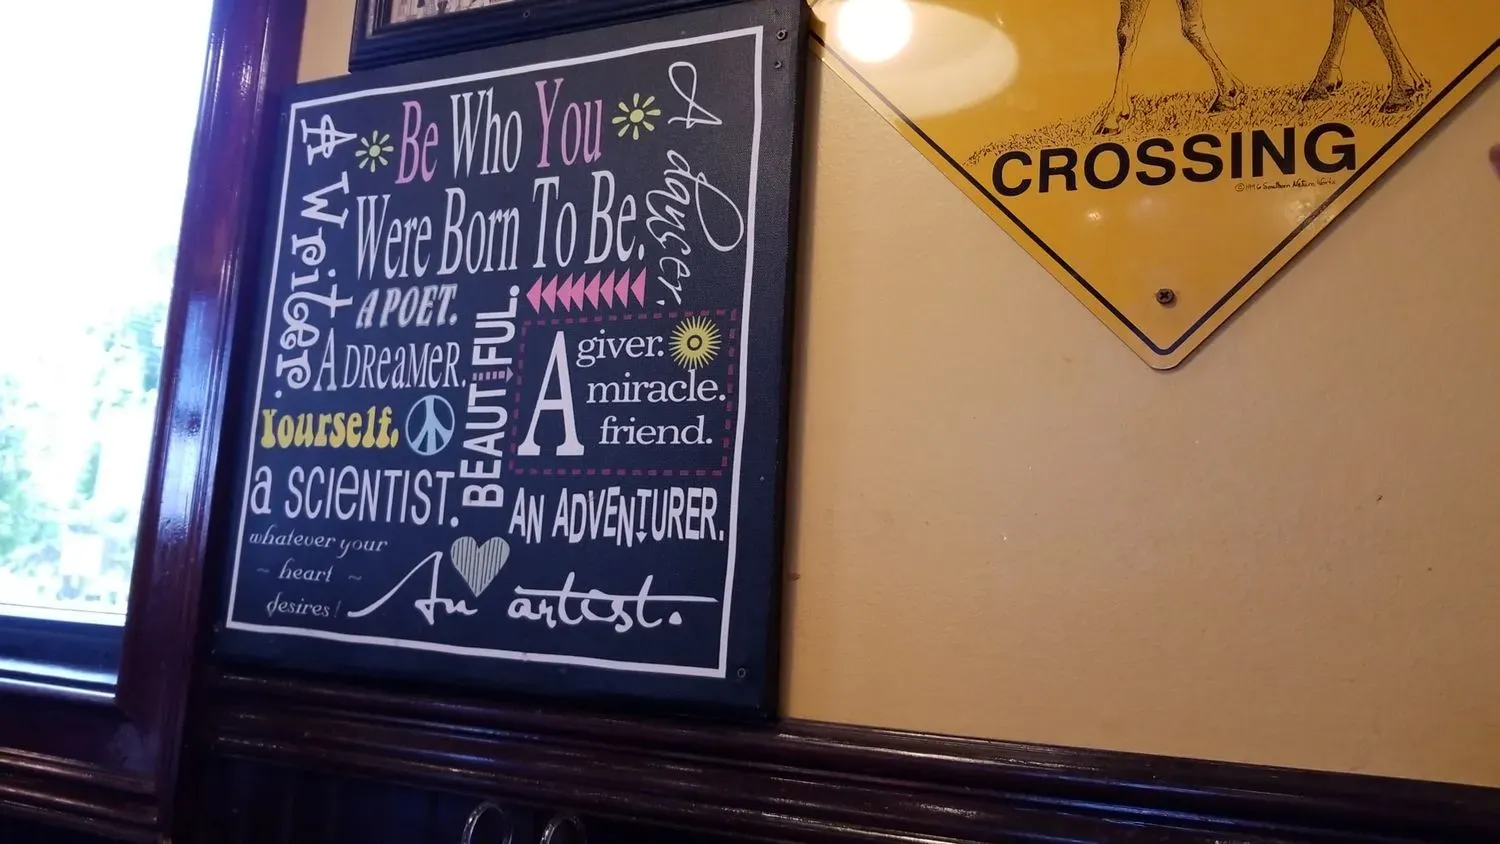 Be Who You
Were Born To Be.
A Writer.
A dancer.
A POET.
A DREAMER.
BEAUTIFUL.
A
giver.
miracle.
friend.
Yourself.
a SCIENTIST.
AN ADVENTURER.
whatever your
~ heart ~
desires!
An artist.
CROSSING
©1996 Southern Nature Works